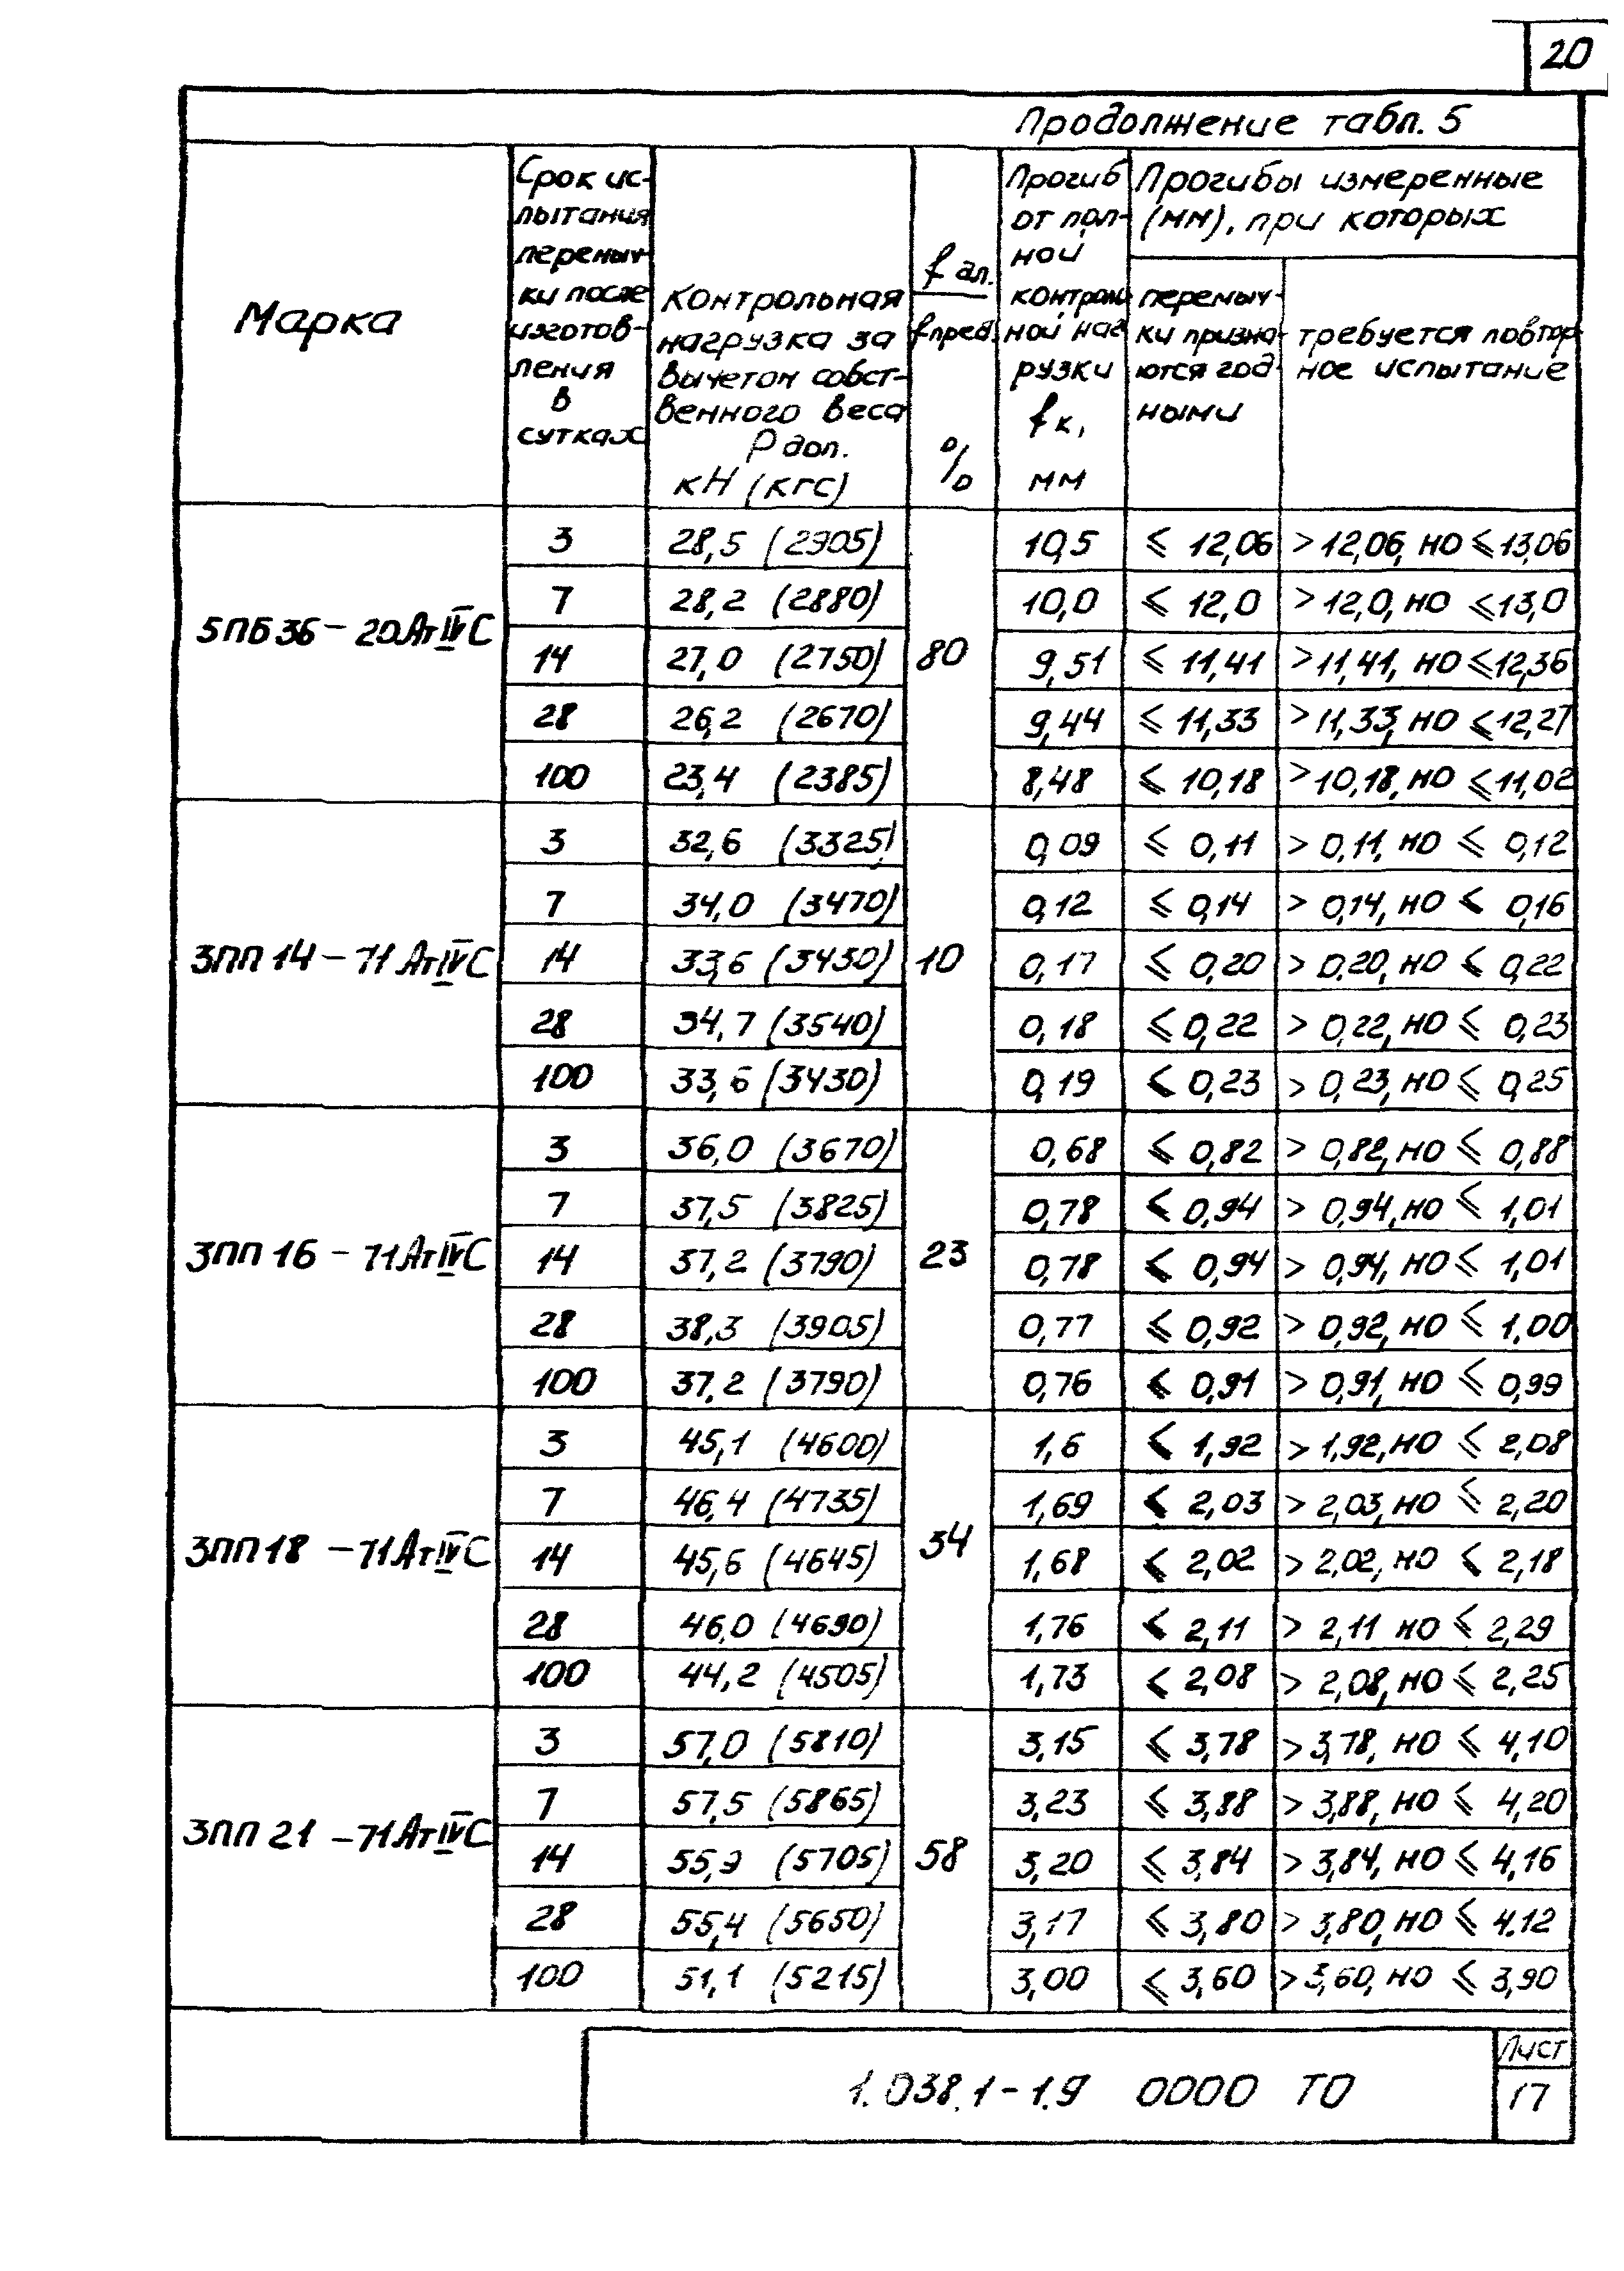 20
Продолжение табл. 5
Марка
Срок ис-
пытания
перемыч-
ки после
изготов-
ления
в
сутках
контрольная
нагрузка за
вычетом собст-
венного веса
Р доп.
кН (кгс)
f дл.
f пред.
%
Прогиб
от пол-
ной
контроль-
ной наг-
рузки
fк,
мм
Прогибы измеренные
(мм), при которых
перемыч-
ки призна-
ются год-
ными
требуется повтор-
ное испытание
5ПБ36 – 20АтIVС 80
3 28,5 (2905) 10,5 ≤ 12,06 > 12,06, но ≤ 13,06
7 28,2 (2880) 10,0 ≤ 12,0 > 12,0, но ≤ 13,0
14 27,0 (2750) 9,51 ≤ 11,41 > 11,41, но ≤ 12,36
28 26,2 (2670) 9,44 ≤ 11,33 > 11,33, но ≤ 12,27
100 23,4 (2385) 8,48 ≤ 10,18 > 10,18, но ≤ 11,02
3ПП14 – 71АтIVС 10
3 32,6 (3325) 0,09 ≤ 0,11 > 0,11, но ≤ 0,12
7 34,0 (3470) 0,12 ≤ 0,14 > 0,14, но ≤ 0,16
14 33,6 (3430) 0,17 ≤ 0,20 > 0,20, но ≤ 0,22
28 34,7 (3540) 0,18 ≤ 0,22 > 0,22, но ≤ 0,23
100 33,6 (3430) 0,19 ≤ 0,23 > 0,23, но ≤ 0,25
3ПП16 – 71АтIVС 23
3 36,0 (3670) 0,68 ≤ 0,82 > 0,82, но ≤ 0,88
7 37,5 (3825) 0,78 ≤ 0,94 > 0,94, но ≤ 1,01
14 37,2 (3790) 0,78 ≤ 0,94 > 0,94, но ≤ 1,01
28 38,3 (3905) 0,77 ≤ 0,92 > 0,92, но ≤ 1,00
100 37,2 (3790) 0,76 ≤ 0,91 > 0,91, но ≤ 0,99
3ПП18 – 71АтIVС 34
3 45,1 (4600) 1,6 ≤ 1,92 > 1,92, но ≤ 2,08
7 46,4 (4735) 1,69 ≤ 2,03 > 2,03, но ≤ 2,20
14 45,6 (4645) 1,68 ≤ 2,02 > 2,02, но ≤ 2,18
28 46,0 (4690) 1,76 ≤ 2,11 > 2,11 но ≤ 2,29
100 44,2 (4505) 1,73 ≤ 2,08 > 2,08, но ≤ 2,25
3ПП21 – 71АтIVС 58
3 57,0 (5810) 3,15 ≤ 3,78 > 3,78, но ≤ 4,10
7 57,5 (5865) 3,23 ≤ 3,88 > 3,88, но ≤ 4,20
14 55,9 (5705) 3,20 ≤ 3,84 > 3,84, но ≤ 4,16
28 55,4 (5650) 3,17 ≤ 3,80 > 3,80, но ≤ 4.12
100 51,1 (5215) 3,00 ≤ 3,60 > 3,60, но ≤ 3,90
1.038.1-1.9 0000 ТО
Лист
17